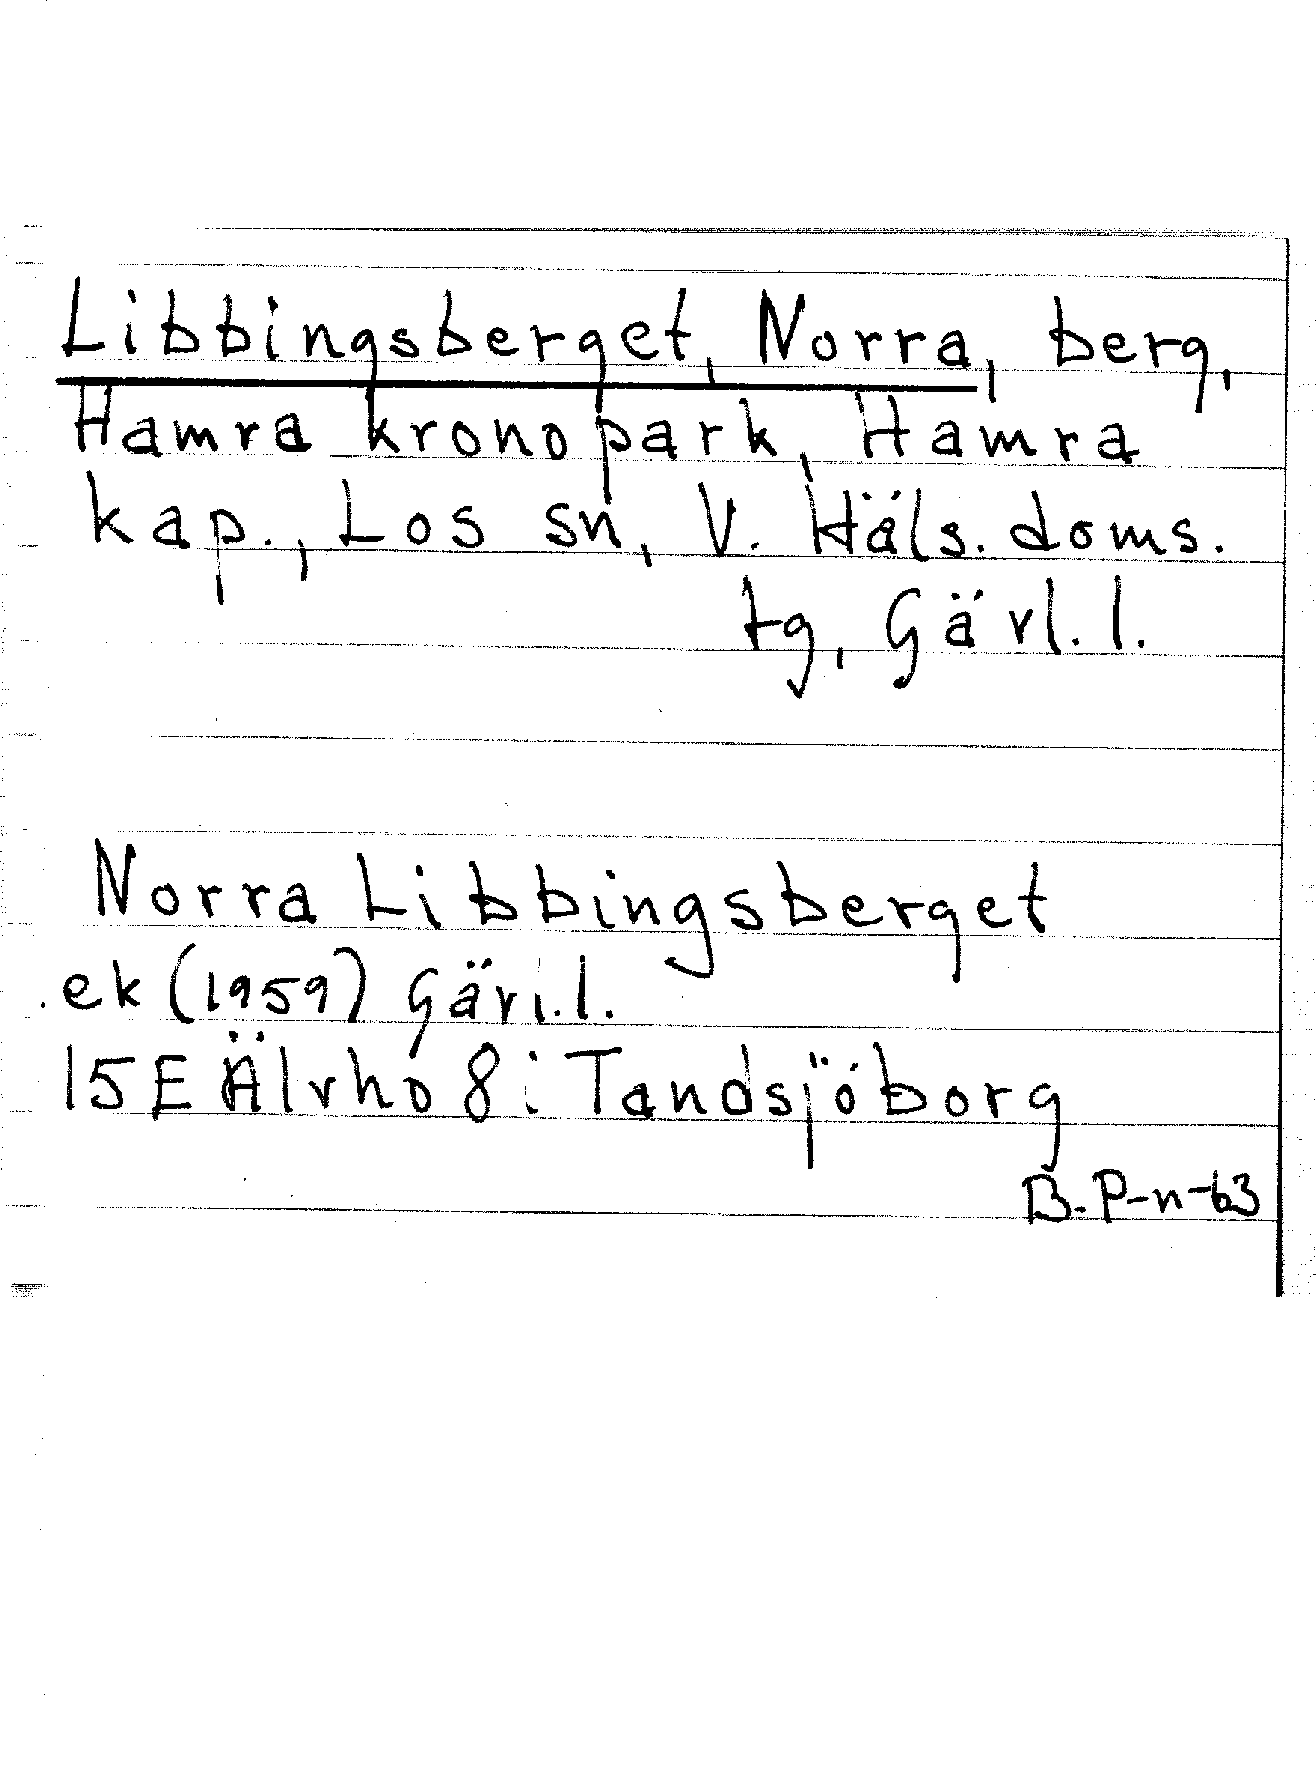 Libbingsberget, Norra, berg,
Hamra kronopark, Hamra
kap., Los sn, V. Häls. doms.
tg, Gävl. l.
Norra Libbingsberget
ek (1959) Gävl. l.
15E Älvho 8i Tandsjöborg
B. P-n-63